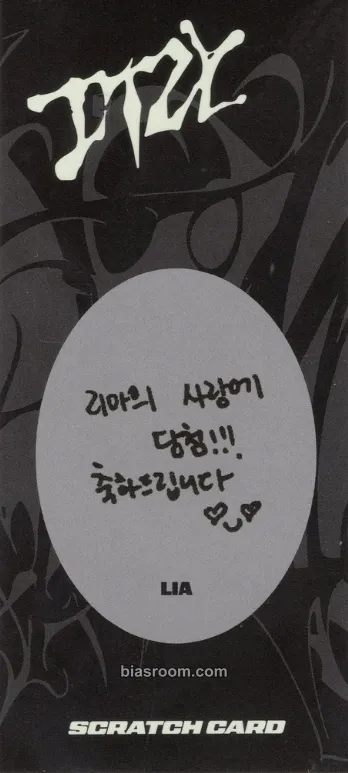 ITZY
리아의 사랑에
당첨!!!
축하드립니다
LIA
biasroom.com
SCRATCH CARD